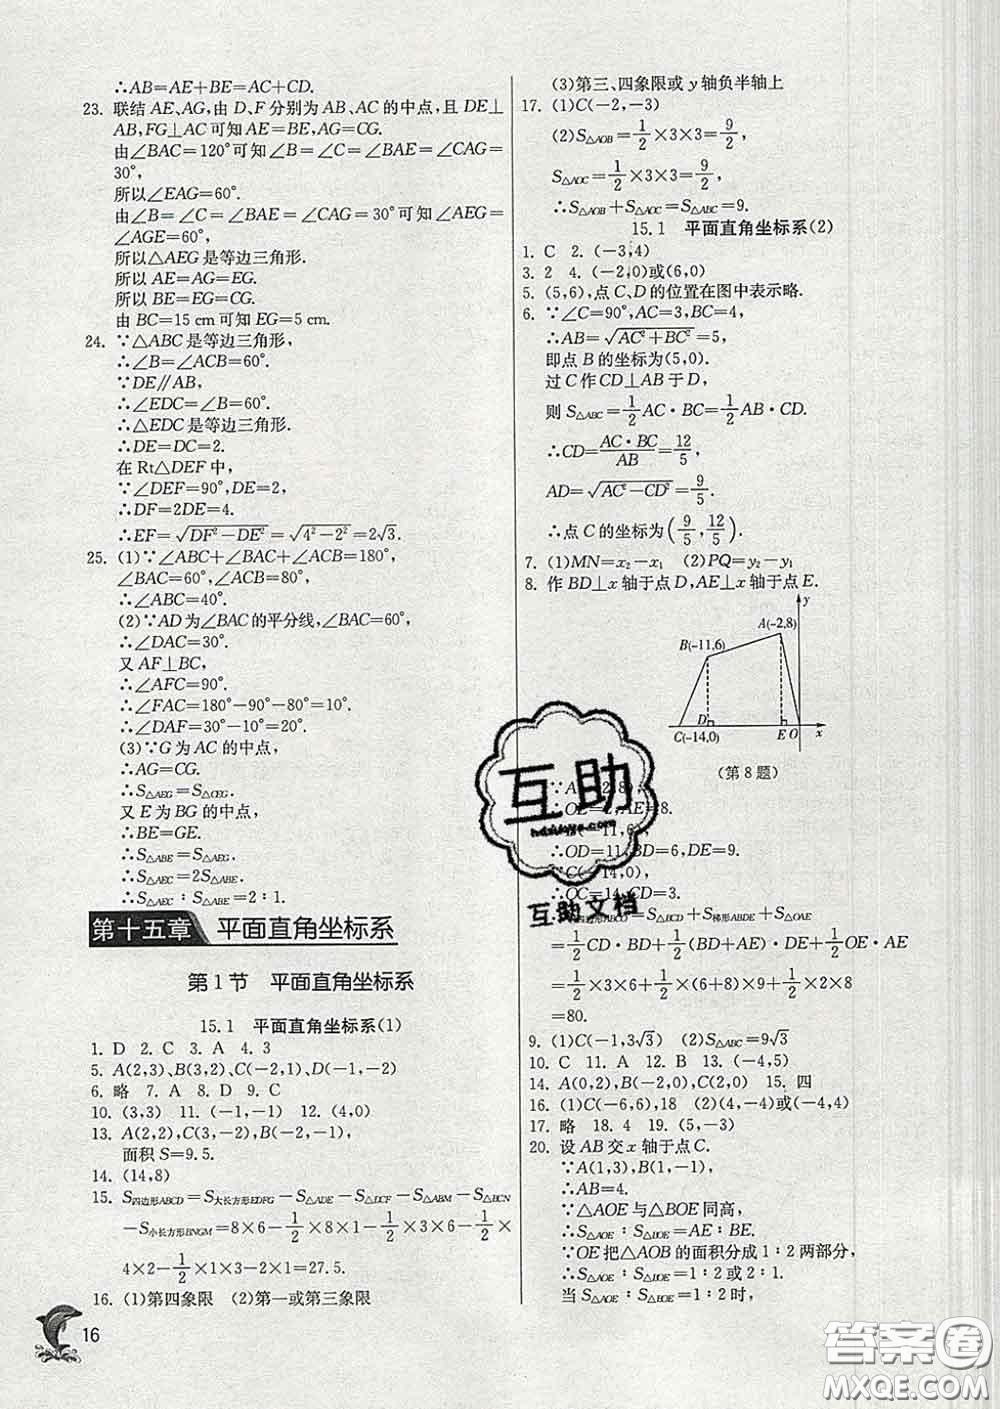 ∴AB=AE+BE=AC+CD.
23. 联结 AE、AG,由 D、F 分别为 AB、AC 的中点,且 DE⊥
AB,FG⊥AC 可知 AE=BE,AG=CG.
由∠BAC=120°可知∠B=∠C=∠BAE=∠CAG=
30°,
所以∠EAG=60°.
由∠B=∠C=∠BAE=∠CAG=30°可知∠AEG=
∠AGE=60°,
所以△AEG是等边三角形.
所以 AE=AG=EG.
所以 BE=EG=CG.
由 BC=15 cm可知 EG=5 cm.
24. ∵△ABC是等边三角形,
∴∠B=∠ACB=60°.
∵DE∥AB,
∴∠EDC=∠B=60°.
∴△EDC是等边三角形.
∴DE=DC=2.
在 Rt△DEF中,
∵∠DEF=90°,DE=2,
∴DF=2DE=4.
∴EF=√(DF²-DE²)=√(4²-2²)=2√3.
25. (1)∵∠ABC+∠BAC+∠ACB=180°,
∠BAC=60°,∠ACB=80°,
∴∠ABC=40°.
(2)∵AD为∠BAC的平分线,∠BAC=60°,
∴∠DAC=30°.
又 AF⊥BC,
∴∠AFC=90°.
∴∠FAC=180°-90°-80°=10°.
∴∠DAF=30°-10°=20°.
(3)∵G为 AC的中点,
∴AG=CG.
∴S△AEG=S△CEG.
又 E为 BG的中点,
∴BE=GE.
∴S△ABE=S△AEG.
∴S△AEC=2S△ABE.
∴S△AEC∶S△ABE=2∶1.
第十五章 平面直角坐标系
第1节 平面直角坐标系
15.1 平面直角坐标系(1)
1. D 2. C 3. A 4. 3
5. A(2,3)、B(3,2)、C(-2,1)、D(-1,-2)
6. 略 7. A 8. D 9. C
10. (3,3) 11. (-1,-1) 12. (4,0)
13. A(2,2),C(3,-2),B(-2,-1),
面积 S=9.5.
14. (14,8)
15. S四边形ABCD=S大长方形EDFG-S△ADE-S△DCF-S△ABM-S△BCN
-S小长方形BNGM=8×6-1/2×8×1-1/2×3×6-1/2×
4×2-1/2×1×3-2×1=27.5.
16. (1)第四象限 (2)第一或第三象限
16
(3)第三、四象限或y轴负半轴上
17. (1)C(-2,-3)
(2)S△AOB=1/2×3×3=9/2,
S△AOC=1/2×3×3=9/2,
∴S△AOB+S△AOC=S△ABC=9.
15.1 平面直角坐标系(2)
1. C 2. (-3,4)
3. 2 4. (-2,0)或(6,0)
5. (5,6),点C、D的位置在图中表示略.
6. ∵∠C=90°,AC=3,BC=4,
∴AB=√(AC²+BC²)=5,
即点 B的坐标为(5,0).
过C作CD⊥AB于D,
则 S△ABC=1/2AC·BC=1/2AB·CD.
∴CD=AC·BC/AB=12/5,
AD=√(AC²-CD²)=9/5.
∴点C的坐标为(9/5,12/5).
7. (1)MN=x₂-x₁ (2)PQ=y₂-y₁
8. 作BD⊥x轴于点D,AE⊥x轴于点E.
y
A(-2,8)
B(-11,6)
D
E O
C(-14,0)
x
(第8题)
∵A(-2,8),
∴OE=2,AE=8.
11,6),
∴OD=11,BD=6,DE=9.
C(-14,0),
∴OC=14,CD=3.
ABCO=S△BCD+S梯形ABDE+S△OAE
=1/2CD·BD+1/2(BD+AE)·DE+1/2OE·AE
=1/2×3×6+1/2×(6+8)×9+1/2×2×8
=80.
9. (1)C(-1,3√3) (2)S△ABC=9√3
10. C 11. A 12. B 13. (-4,5)
14. A(0,2),B(-4,-2),C(2,0) 15. 四
16. (1)C(-6,6),18 (2)(4,-4)或(-4,4)
17. 略 18. 4 19. (5,-3)
20. 设AB交x轴于点C.
∵A(1,3),B(1,-1),
∴AB=4.
∵△AOE与△BOE同高,
∴S△AOE∶S△BOE=AE∶BE.
∵OE把△AOB的面积分成1∶2两部分,
∴S△AOE∶S△BOE=1∶2或2∶1.
当 S△AOE∶S△BOE=1∶2时,
互助
hdzuoye.com
互助文档
答案圈
MXQE.COM